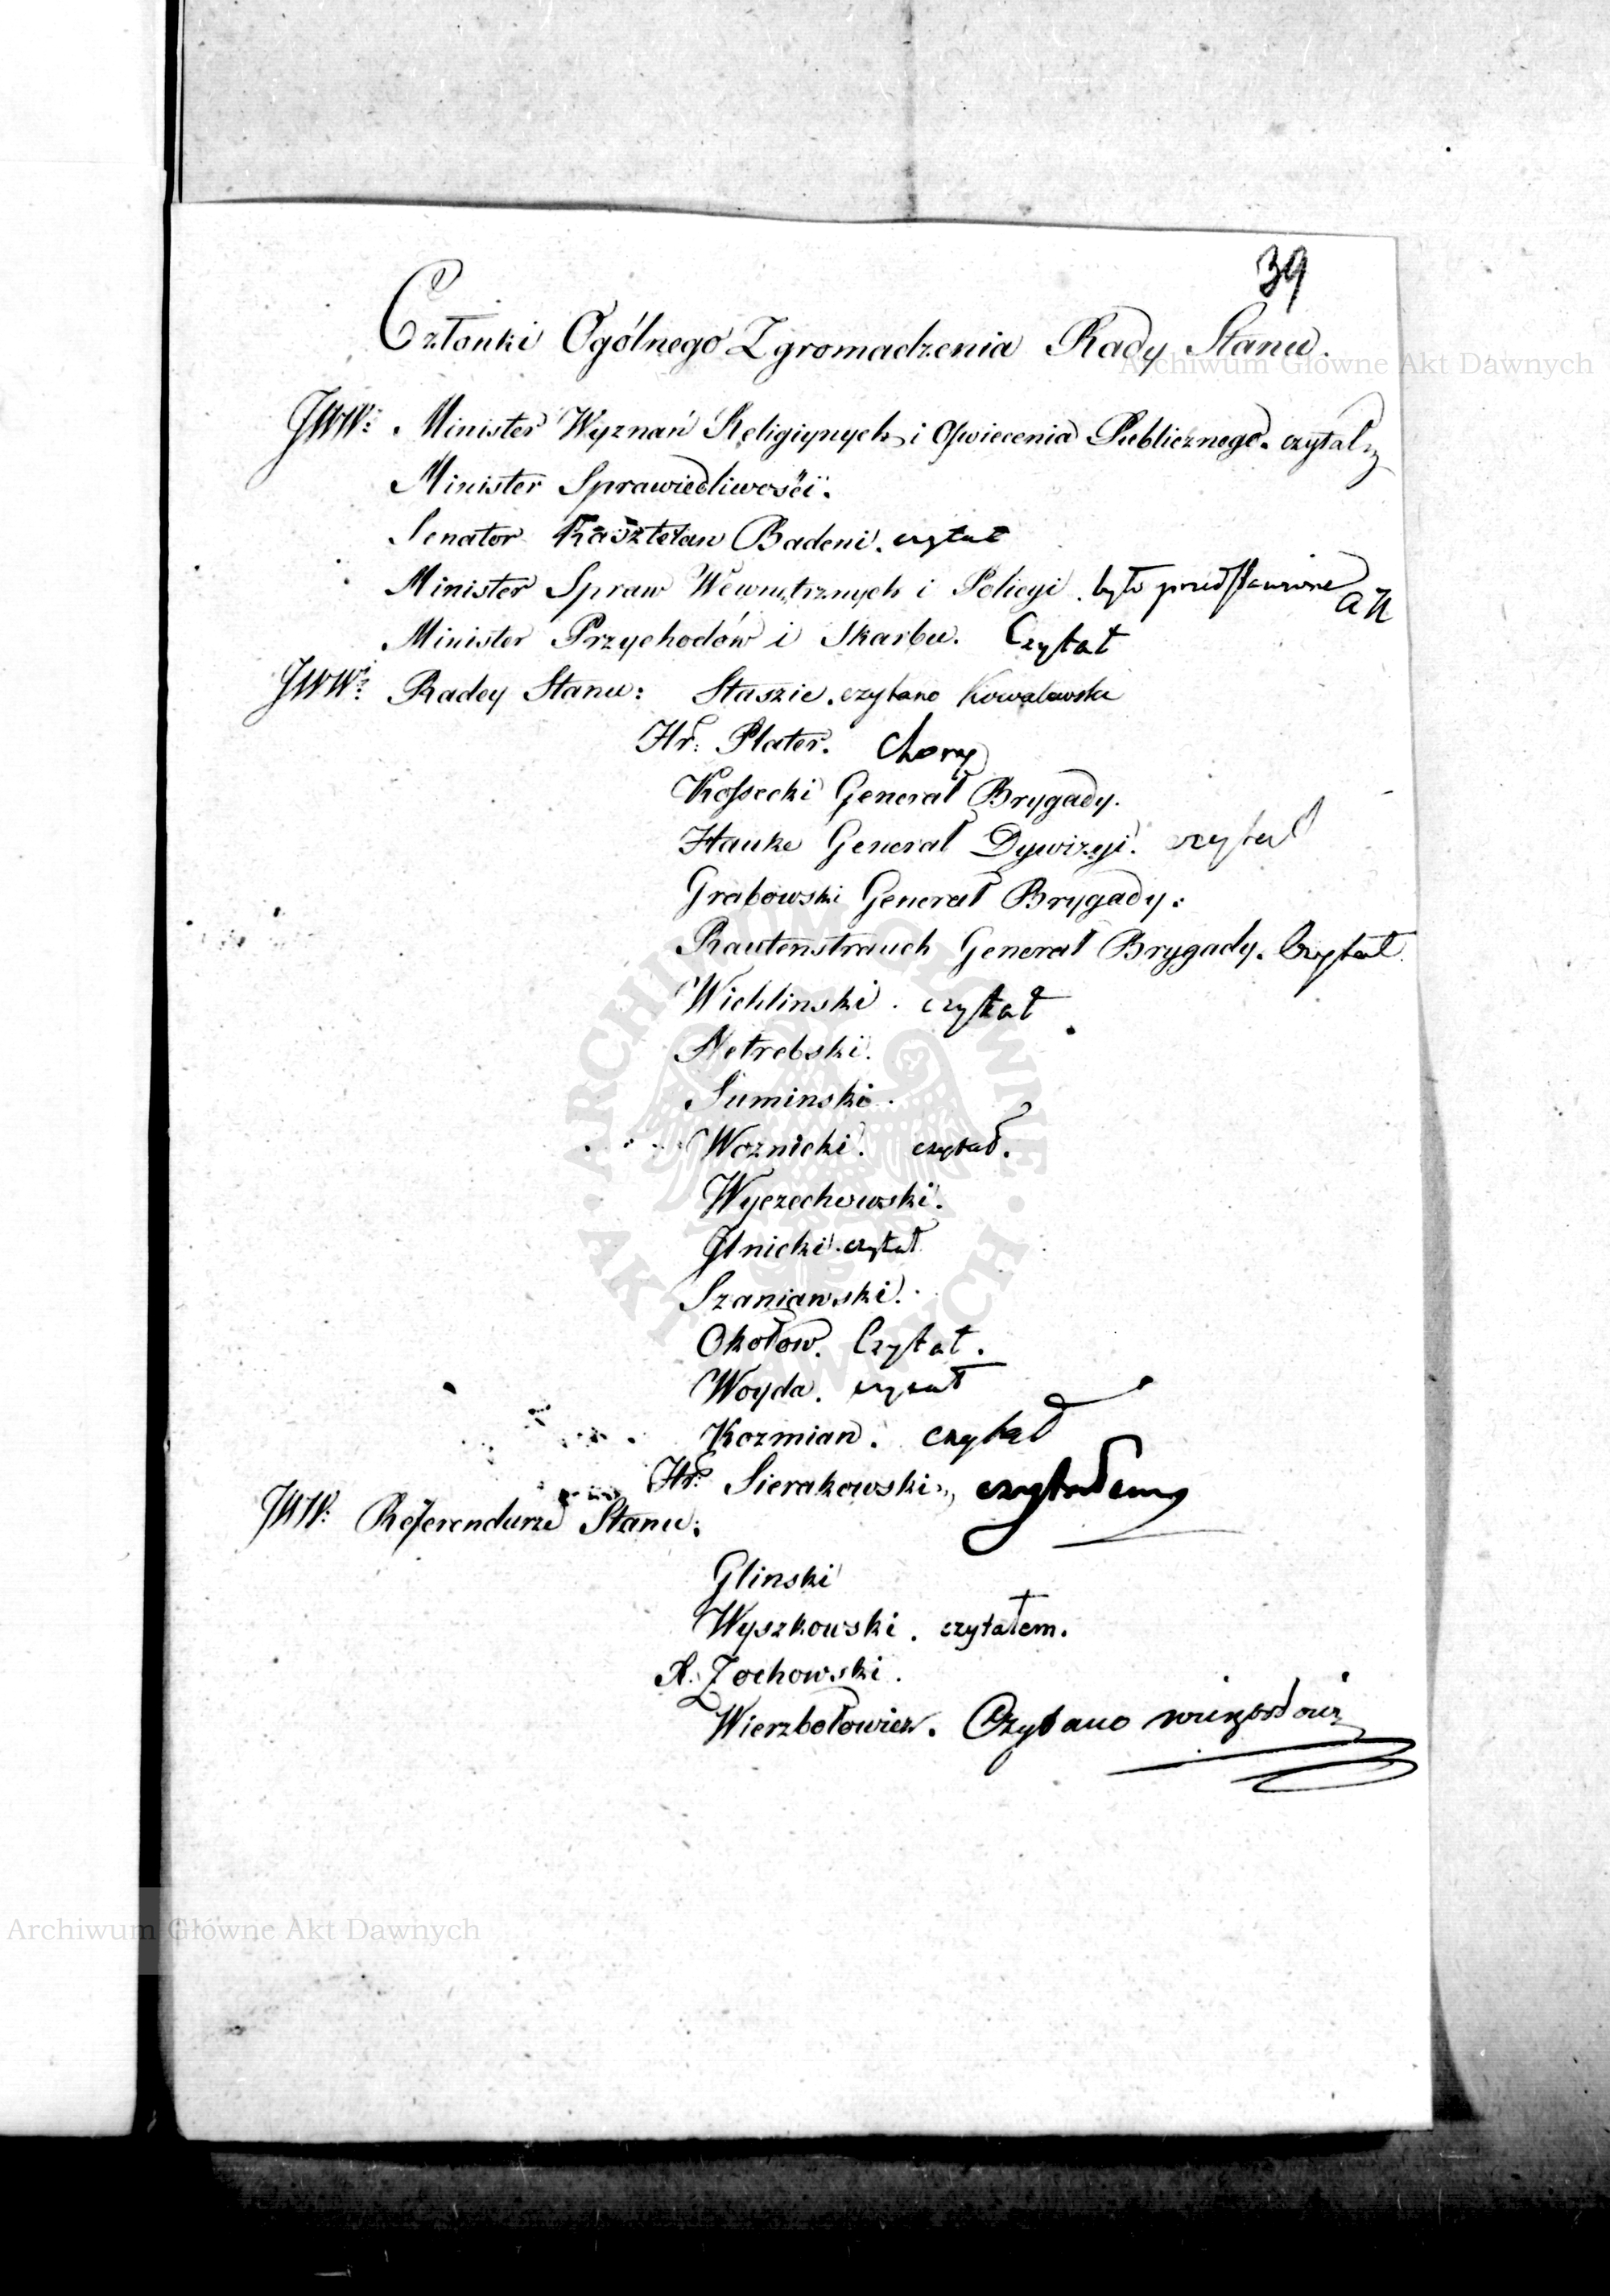 39
Członki Ogólnego Zgromadzenia Rady Stanu.
Archiwum Główne Akt Dawnych
JWW: Minister Wyznań Religiynych i Oświecenia Publicznego. czytał
Minister Sprawiedliwości.
Senator Kasztelan Badeni. czytał
Minister Spraw Wewnętrznych i Policyi. było przedstawione
Minister Przychodów i Skarbu. Czytał
JWW: Radcy Stanu: Staszic. czytano Kowalewski
Hr: Plater. chory
Kossecki Generał Brygady.
Hauke Generał Dywizyi. czytał
Grabowski Generał Brygady.
Rautenstrauch Generał Brygady. Czytał
Wichlinski. czytał
Netrebski.
Suminski.
Woznicki. czytał.
Wyczechowski.
Jlnicki. czytał
Szaniawski.
Okołow. Czytał.
Woyda. czytał
Kozmian. czytał
Hr: Sierakowski, czytałem
JWW: Referendarze Stanu:
Glinski
Wyszkowski. czytałem.
Zochowski.
Wierzbołowicz. Czytano
ARCHIWUM GŁÓWNE AKT DAWNYCH
Archiwum Główne Akt Dawnych